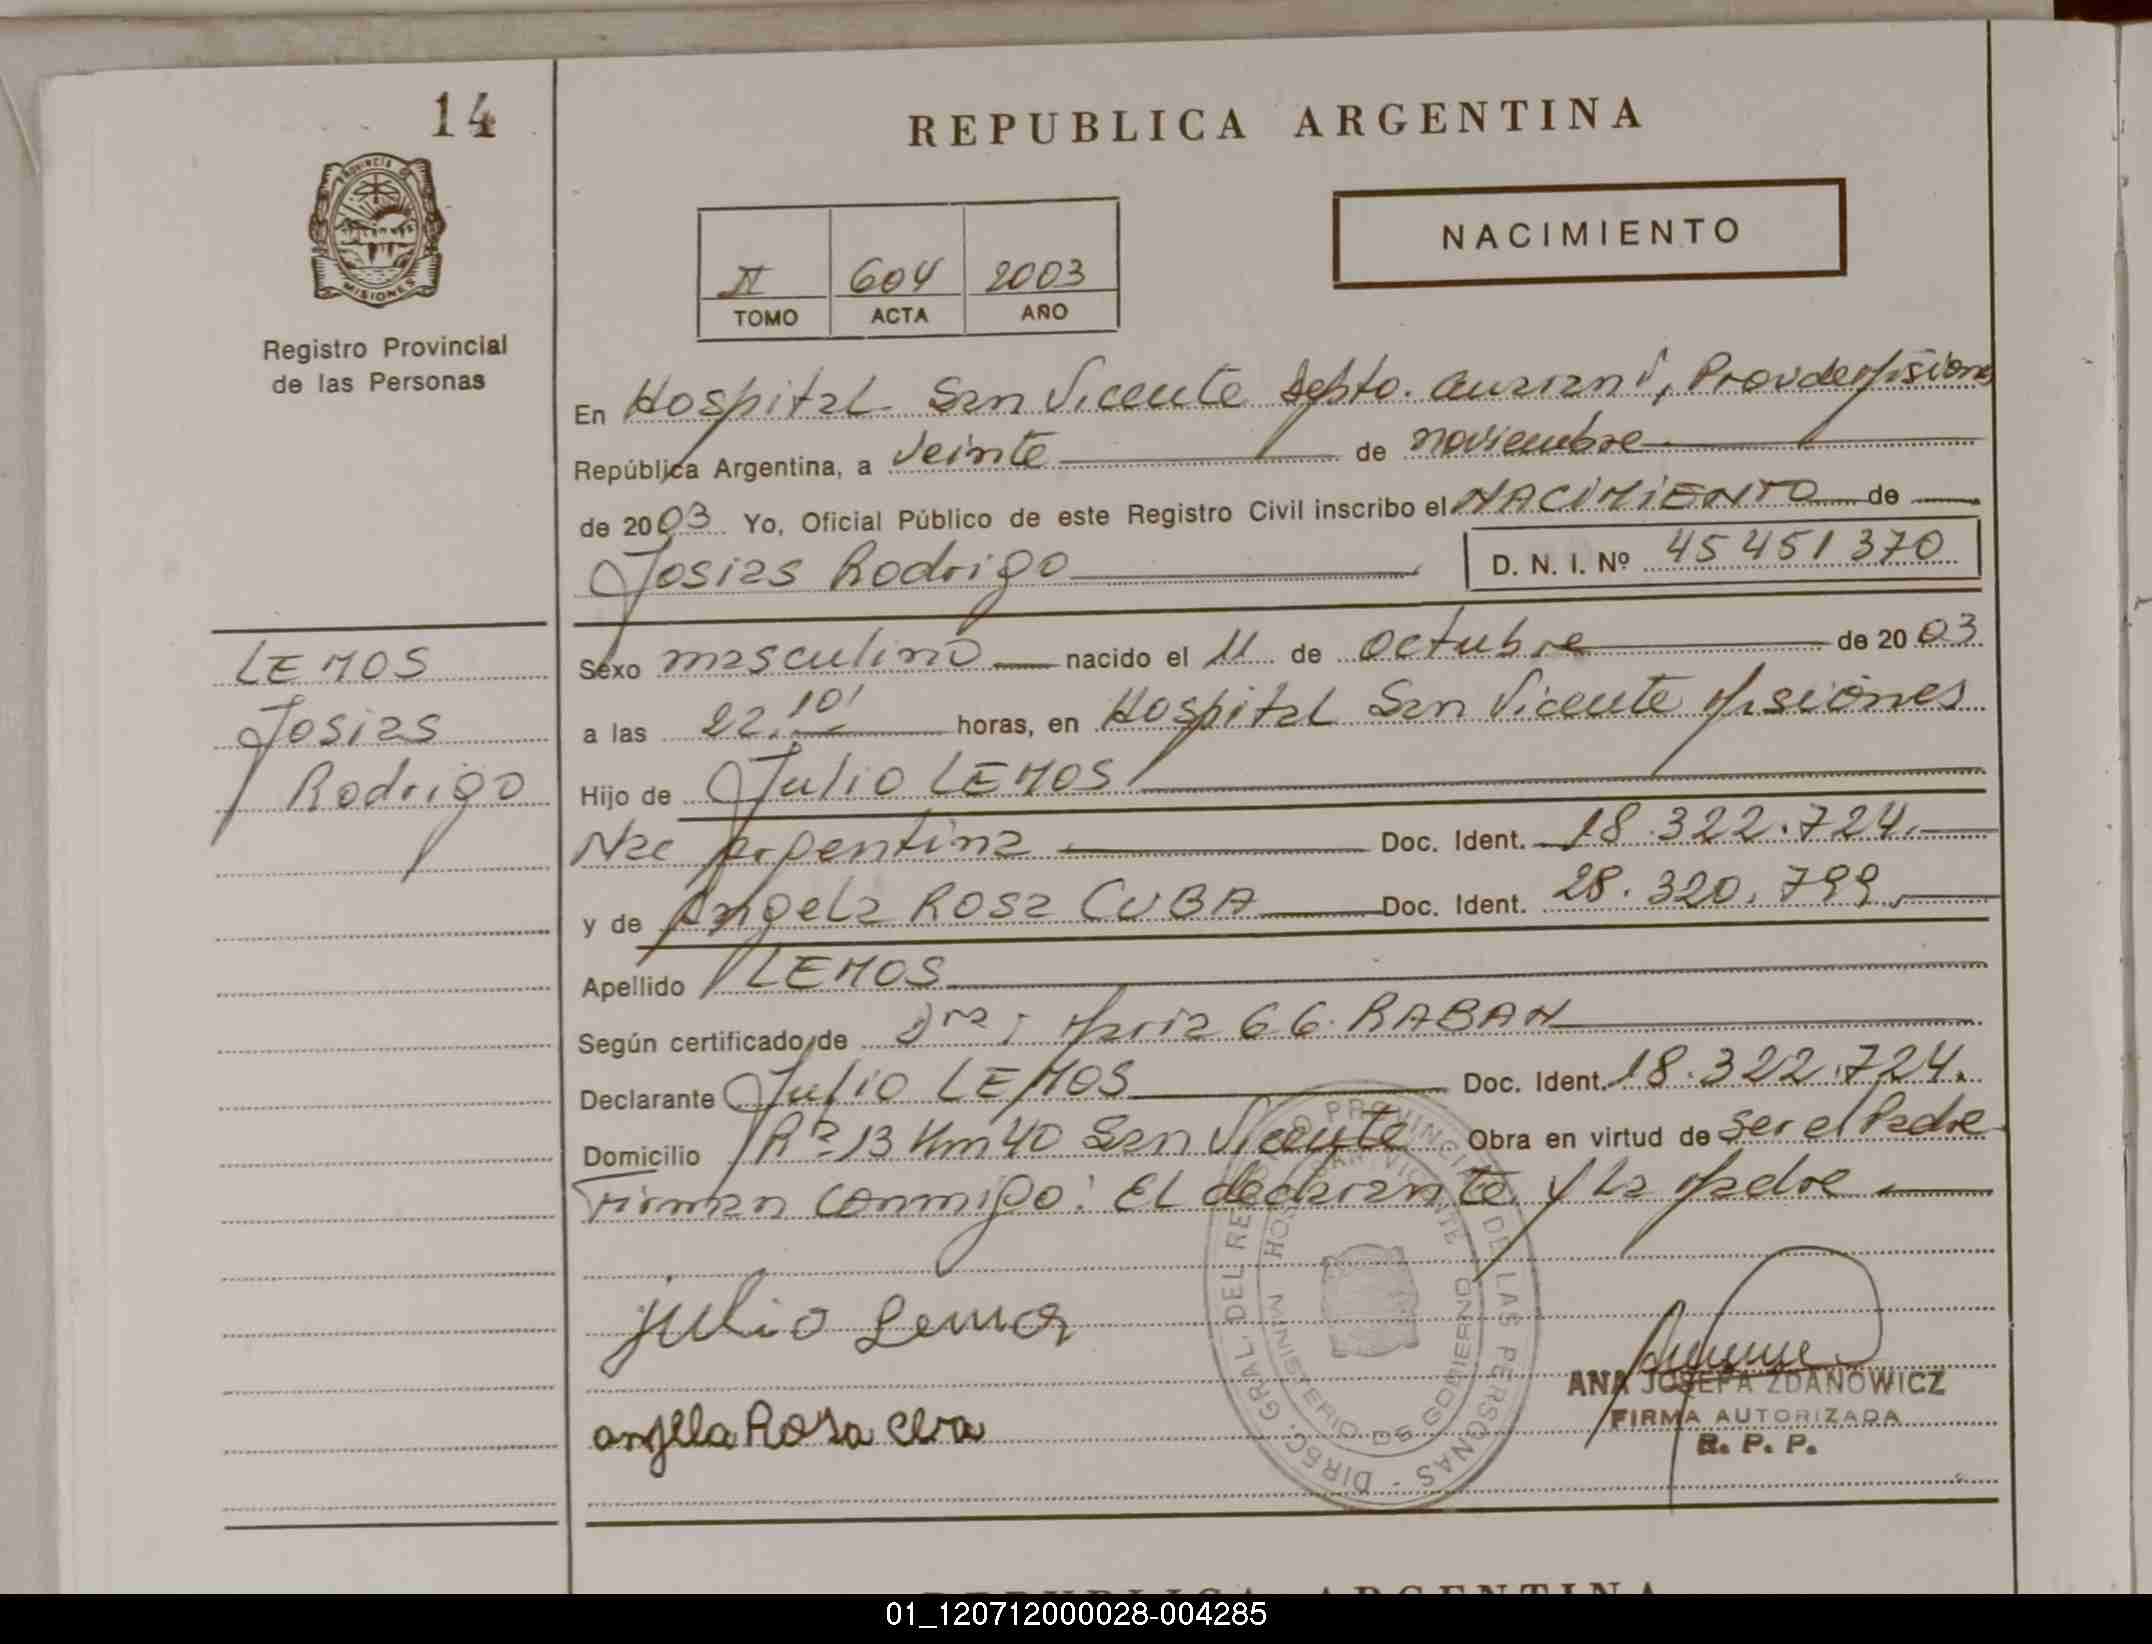 14
REPUBLICA ARGENTINA
PROVINCIA DE
MISIONES
NACIMIENTO
II 604 2003
TOMO ACTA AÑO
Registro Provincial
de las Personas
En Hospital San Vicente Dpto. Guaraní, Prov de Misiones
República Argentina, a veinte de noviembre
de 2003 Yo, Oficial Público de este Registro Civil inscribo el NACIMIENTO de
Josias Rodrigo D. N. I. Nº 45451370
LEMOS
Josias
Rodrigo
Sexo masculino nacido el 11 de octubre de 2003
a las 22.10' horas, en Hospital San Vicente Misiones
Hijo de Julio LEMOS
Nac Argentina Doc. Ident. 18.322.724.
y de Angela Rosa CUBA Doc. Ident. 28.320.799.
Apellido LEMOS
Según certificado de Dra; Maria G G. RABAN
Declarante Julio LEMOS Doc. Ident. 18.322.724.
Domicilio Rª 13 Km 40 San Vicente Obra en virtud de ser el Padre
Firman conmigo: El declarante y la Madre
DIREC. GRAL. DEL REGISTRO PROVINCIAL DE LAS PERSONAS -
HOSP. SAN VICENTE
MINISTERIO DE GOBIERNO
Julio Lemos
angela Rosa
ANA JOSEFA ZDANOWICZ
FIRMA AUTORIZADA
R. P. P.
REPUBLICA ARGENTINA
01_120712000028-004285